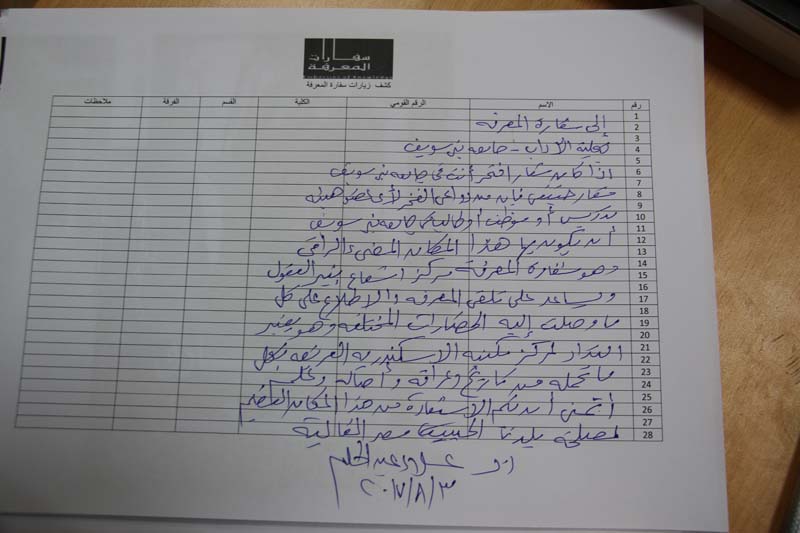 سفارات
المعرفة
كشف زيارات سفارة المعرفة
رقم الاسم الرقم القومي الكلية القسم الفرقة ملاحظات
1
2
3
4
5
6
7
8
9
10
11
12
13
14
15
16
17
18
19
20
21
22
23
24
25
26
27
28
إلى سفارة المعرفة
بكلية الآداب - جامعة بنى سويف
إذا كان شعار افتخر أنت فى جامعة بنى سويف
شعار حقيقى فإن من دواعى الفخر لأى عضو هيئة
تدريس أو موظف أو طالب بجامعة بنى سويف
أن يكون بها هذا المكان المضىء الراقى
وهو سفارة المعرفة مركز اشعاع ينير العقول
ويساعد على تلقى المعرفة والاطلاع على كل
ما وصلت إليه الحضارات المختلفة وهو يعتبر
امتداد لمركز مكتبة الاسكندرية العريقة بكل
ما تحمله من تاريخ وعراقة وأصالة وعلم
أتمنى أن تتم الاستفادة من هذا المكان العظيم
لمصلحة بلدنا الحبيبة مصر الغالية
عبد الحليم
٢٠١٧/٨/٣